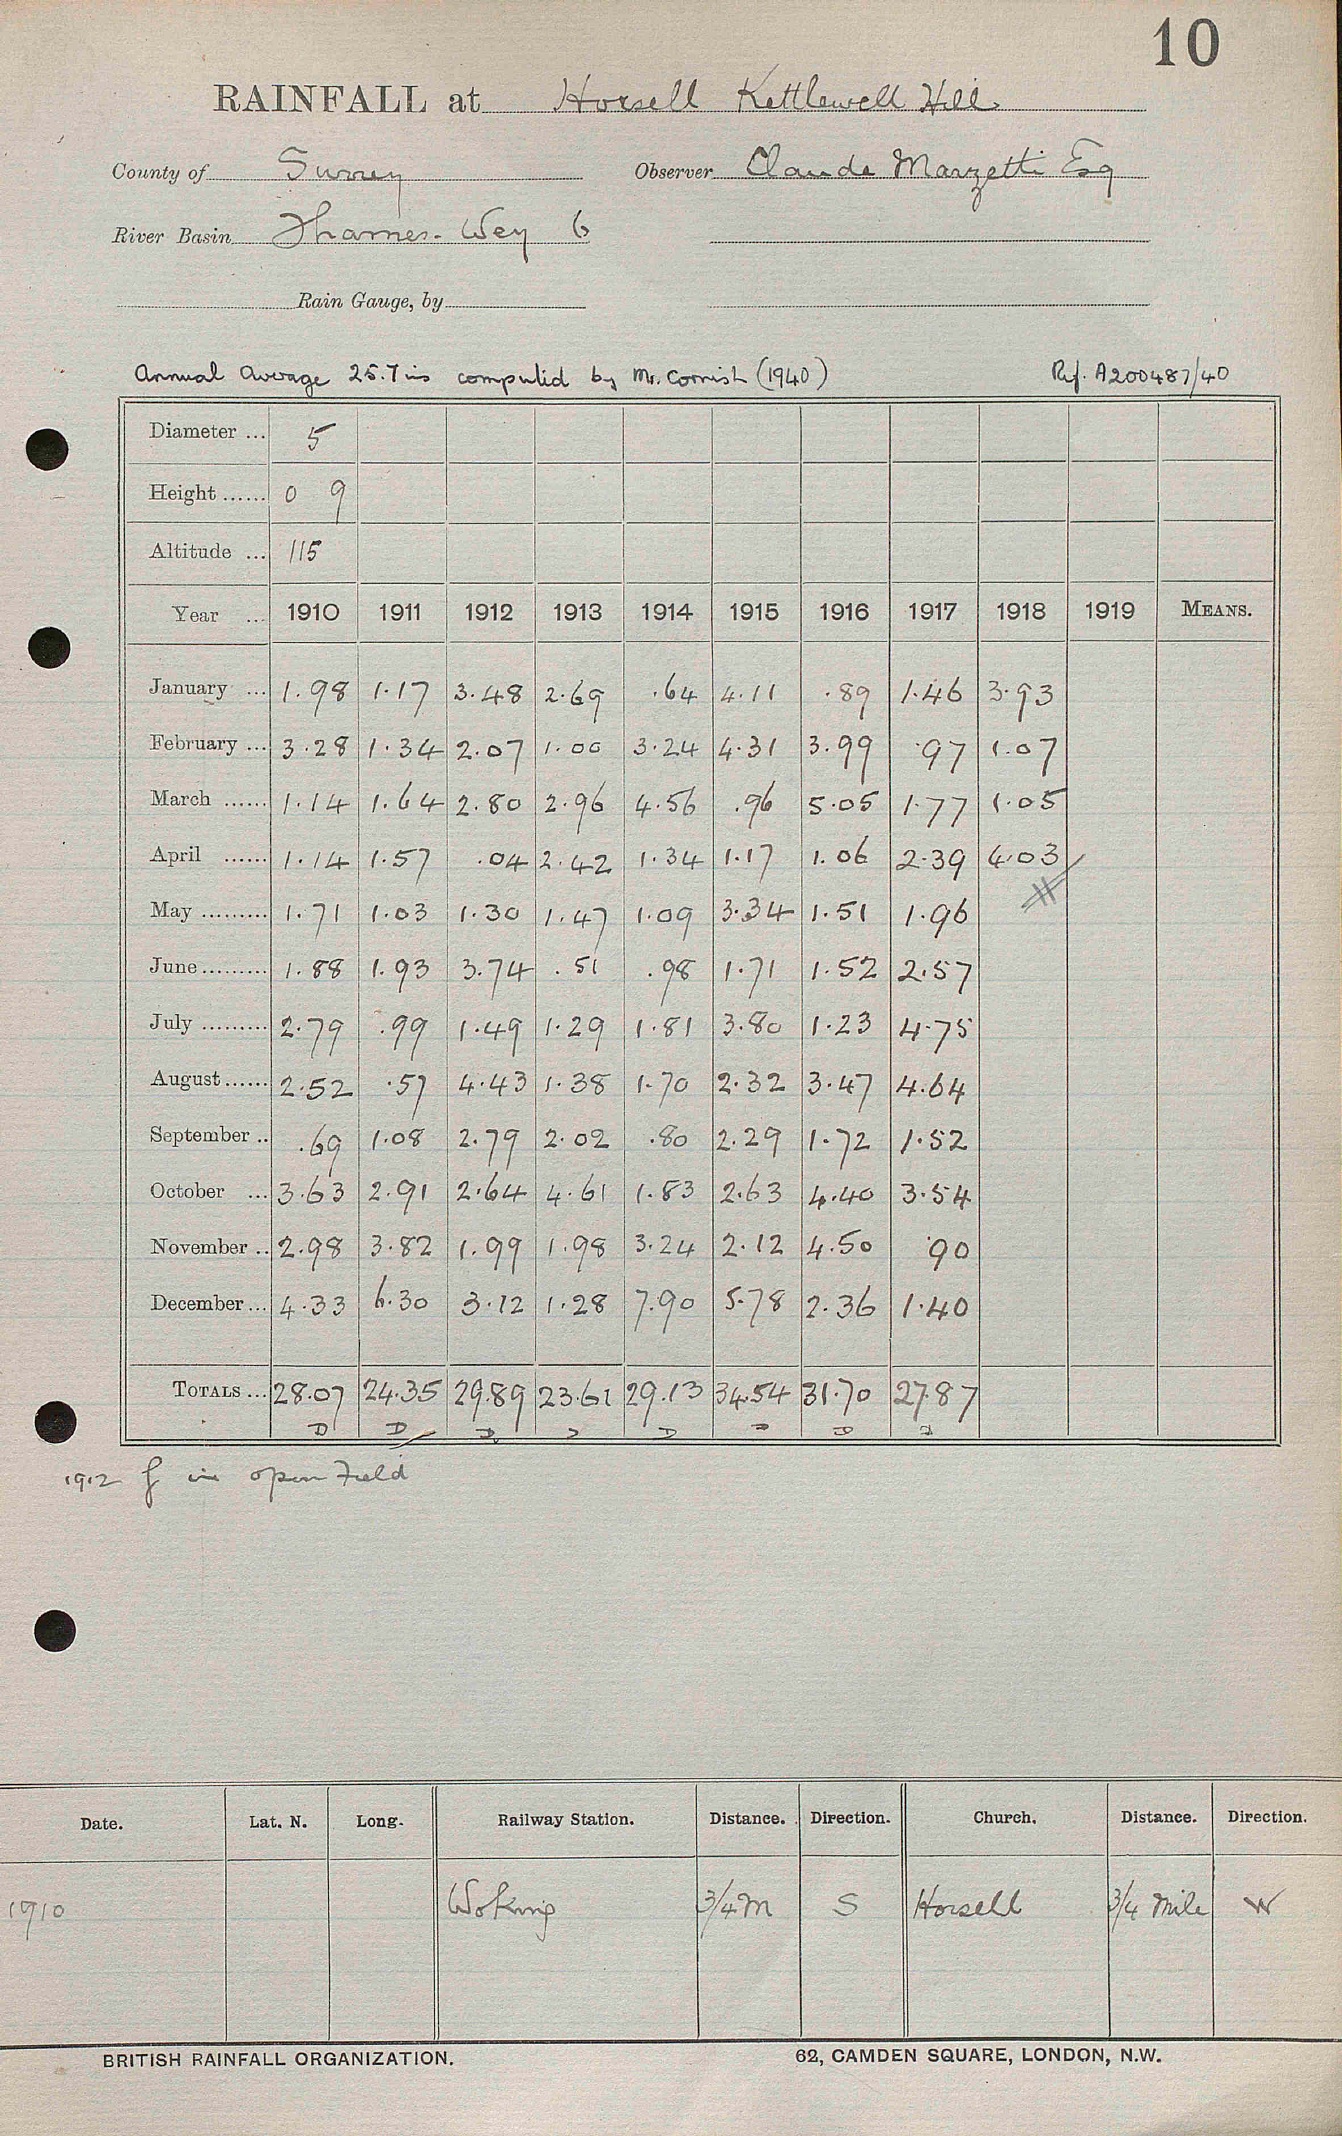 10
RAINFALL at Horsell Kettlewell Hill
County of Surrey Observer Claude Marzetti Esq
River Basin Thames - Wey 6
Rain Gauge, by
Annual Average 25.7 ins computed by Mr. Cornish (1940) Ref. A200487/40
Diameter ... 5
Height ...... 0 9
Altitude ... 115
Year ... 1910 1911 1912 1913 1914 1915 1916 1917 1918 1919 MEANS.
January ... 1.98 1.17 3.48 2.69 .64 4.11 .89 1.46 3.93
February ... 3.28 1.34 2.07 1.00 3.24 4.31 3.99 .97 1.07
March ...... 1.14 1.64 2.80 2.96 4.56 .96 5.05 1.77 1.05
April ...... 1.14 1.57 .04 2.42 1.34 1.17 1.06 2.39 4.03
May ......... 1.71 1.03 1.30 1.47 1.09 3.34 1.51 1.96
June ......... 1.88 1.93 3.74 .51 .98 1.71 1.52 2.57
July ......... 2.79 .99 1.49 1.29 1.81 3.80 1.23 4.75
August ...... 2.52 .57 4.43 1.38 1.70 2.32 3.47 4.64
September .. .69 1.08 2.79 2.02 .80 2.29 1.72 1.52
October ... 3.63 2.91 2.64 4.61 1.83 2.63 4.40 3.54
November .. 2.98 3.82 1.99 1.98 3.24 2.12 4.50 .90
December ... 4.33 6.30 3.12 1.28 7.90 5.78 2.36 1.40
TOTALS ... 28.07 24.35 29.89 23.61 29.13 34.54 31.70 27.87
D D D D D D D
1912 in open Field
Date. Lat. N. Long. Railway Station. Distance. Direction. Church. Distance. Direction.
1910 Woking 3/4 m S Horsell 3/4 Mile W
BRITISH RAINFALL ORGANIZATION. 62, CAMDEN SQUARE, LONDON, N.W.